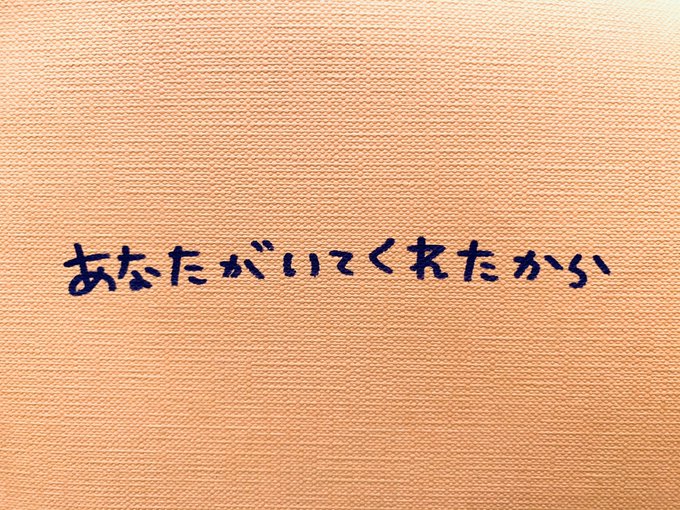 あなたがいてくれたから